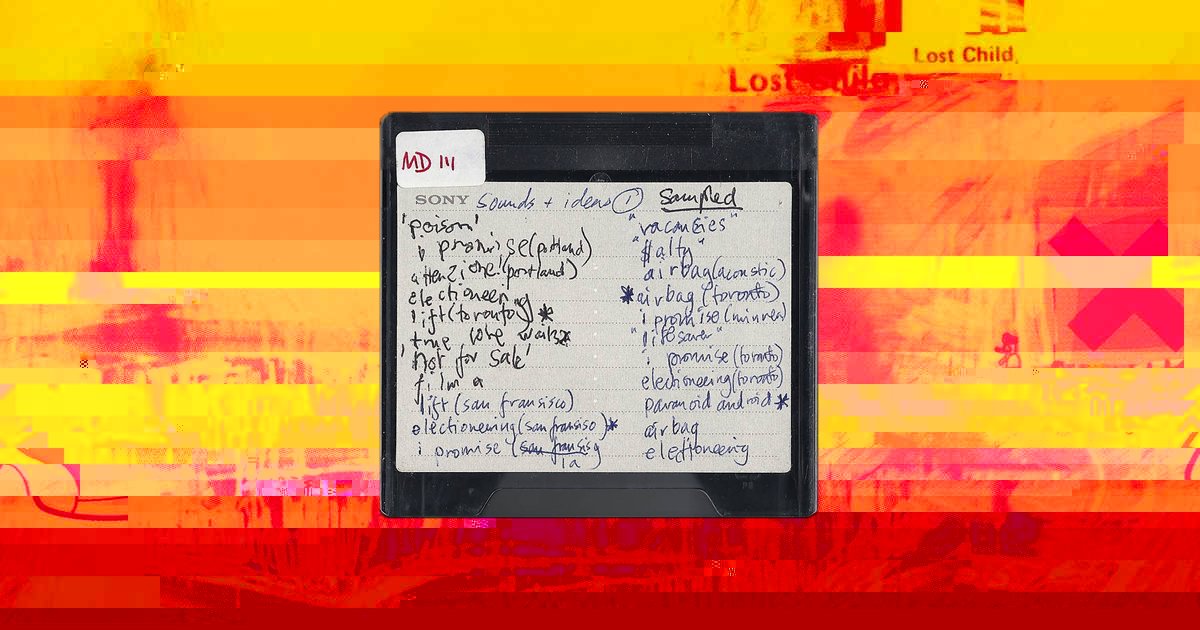 Lost Child
Lost Child
MD 111
SONY Sounds + ideas ① Sampled
'poison'
i promise (portland)
attenzione! (portland)
electioneering
lift (toronto) *
true love waits *
'Not for Sale'
lift (san fransisco)
electioneering (san fransisco) *
i promise (san fransis
la
"vacancies"
airbag (acoustic)
*airbag (toronto)
i promise
"lifesaver"
i promise (toronto)
electioneering (toronto)
paranoid android *
airbag
electioneering